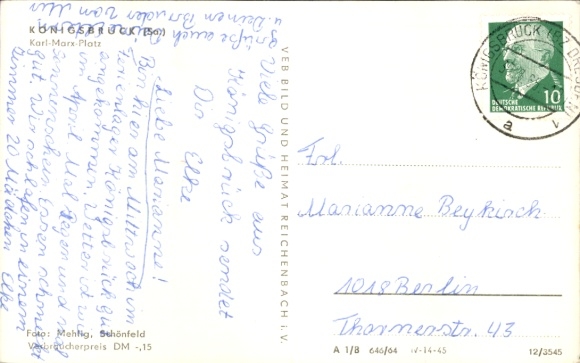 KÖNIGSBRÜCK (Sa.)
Karl-Marx-Platz
Liebe Marianne!
Bin hier am Mittwoch im
Ferienlager Königsbrück gut
angekommen. Wetter ist wie
im April Mal Regen und mal
Sonnenschein. Essen schmeckt
gut. Wir schlafen in einem
Zimmer 20 Mädchen Elke
Viele Grüße aus
Königsbrück sendet
Dir Elke
grüße auch
u. Deinen Bruder von mir
Foto: Mehlig, Schönfeld
Verbraucherpreis DM -,15
VEB BILD UND HEIMAT REICHENBACH i. V.
KÖNIGSBRÜCK (BZ DRESDEN)
a
10
DEUTSCHE
DEMOKRATISCHE REPUBLIK
Frl.
Marianne Beykirch
1018 Berlin
Thornerstr. 43
A 1/8 646/64 IV-14-45 12/3545